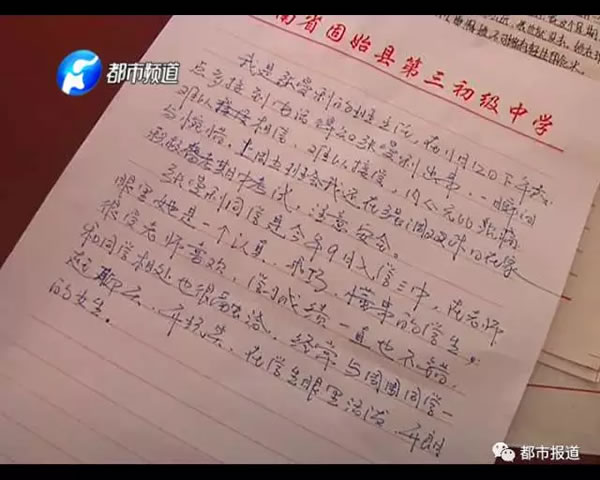 都市频道
南省固始县第三初级中学
我是张曼利的班主任,在11月12日下午
点多接到电话得知张曼利出事,一瞬间
难以相信,难以接受,内心无比悲痛
与惋惜,上周五班会我还在强调
期中考试,注意安全。
张曼利同学是今年9月入学三中,在老师
眼里她是一个认真、懂事的学生,
很受老师喜欢,学习成绩一直也不错,
和同学相处也很融洽,经常与周围同学一
起聊天、开玩笑,在学生眼里活泼、开朗
的女生。
都市报道